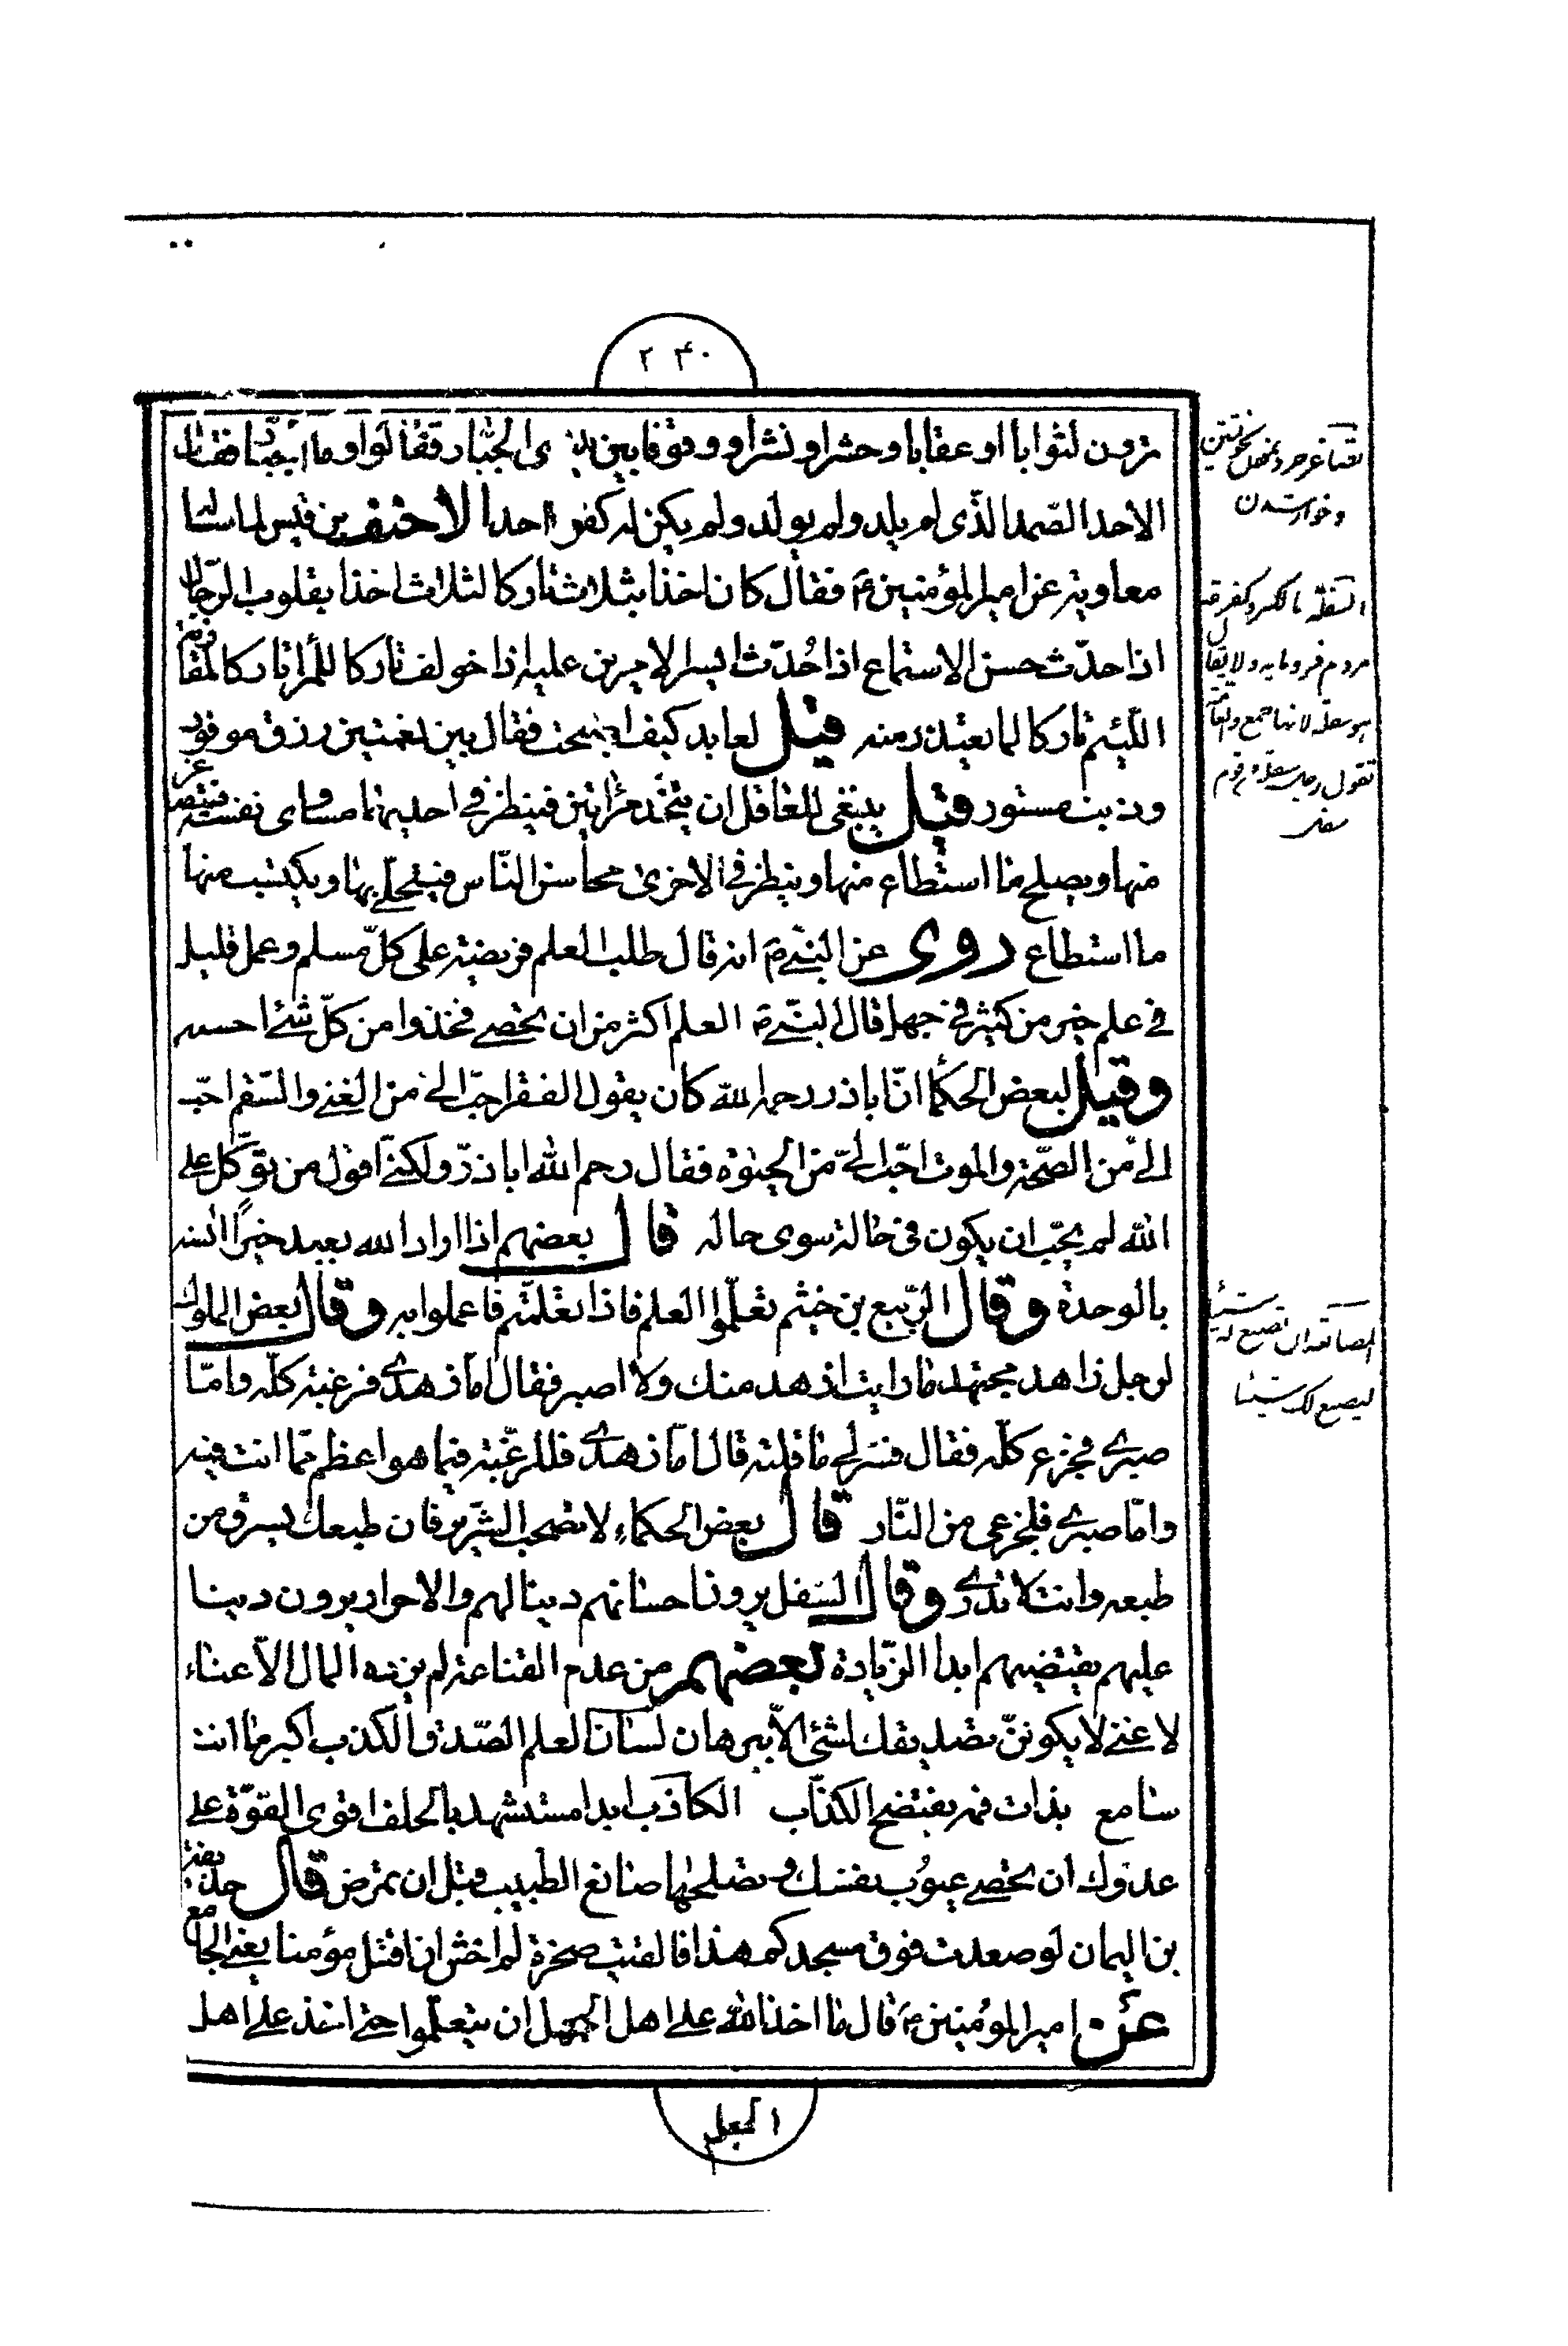 ۲۴۰
ترون لثوابا او عقابا وحشرا ونشرا ووقوفا بين يدى الجبار فقالوا وما الجبار فقال
الاحد الصمد الذّى لم يلد ولم يولد ولم يكن له كفوا احد الاحنف بن قيس لما سئله
معاوية عن امير المؤمنين ع فقال كان اخذا بثلاث تاركا لثلاث اخذا بقلوب الرّجال
اذا حدّث حسن الاستماع اذا حُدّث ايسر الامرين عليه اذا خولف تاركا للمرا تاركا لمقارنة
اللّئيم تاركا لما يعتذر منه قيل لعابد كيف اصبحت فقال بين نعمتين رزق موفور
وذنب مستور قيل ينبغى للعاقل ان يتّخذ مراتين فينظر فى احديهما مساوى نفسه فيتصغر
منها ويصلح ما استطاع منها وينظر فى الاخرى محاسن النّاس فيتحلّى بها ويكتسب منها
ما استطاع روى عن النبىّ ص انه قال طلب العلم فريضة على كلّ مسلم وعمل قليل
فى علم خير من كثير فى جهل قال النبىّ ص العلم اكثر من ان يحصى فخذوا من كلّ شئ احسنه
وقيل لبعض الحكما انّ اباذر رحمه الله كان يقول الفقر احبّ الىّ من الغنى والسّقم احبّ
الىّ من الصّحة والموت احبّ الىّ من الحيوة فقال رحم الله اباذرّ ولكنّى اقول من توكّل على
الله لم يحبّ ان يكون فى حالة سوى حاله قال بعضهم اذا اراد الله بعبد خيرًا انسه
بالوحدة وقال الرّبيع بن خثيم تعلّموا العلم فاذا تعلّمتم فاعملوا به وقال بعض الملوك
لرجل زاهد مجتهد ما رايت ازهد منك ولا اصبر فقال امّا زهدى فرغبة كلّه وامّا
صبرى فجزع كلّه فقال فسّر لى ما قلته قال امّا زهدى فللرغبة فيما هو اعظم ممّا انت فيه
وامّا صبرى فلجزعى من النّار قال بعض الحكماء لا تصحب الشّرير فان طبعك يسرق من
طبعه وانت لا تدرى وقال السّفل يرون احسانهم دينا لهم والاحرار يرون دينا
عليهم يقتضيهم ابدا الزّيادة بعضهم من عدم القناعة لم يزده المال الاّ عناء
لا غنى لا يكوننّ تصديقك لشئ الاّ ببرهان لسان العلم الصّدق والكذب اكبر ما انت
سامع بذات فم يفتضح الكذّاب الكاذب ابدا مستشهد بالحلف اقوى القوّة على
عدوك ان تحصى عيوب نفسك وتصلحها صانع الطبيب قبل ان تمرض قال حذيفة
بن اليمان لو صعدت فوق مسجدكم هذا فالقيت صخرة لم اخش ان اقتل مؤمنا يعنى الجامع
عن امير المؤمنين ع قال ما اخذ الله على اهل الجهل ان يتعلّموا حتى اخذ على اهل
العلم
وخوار شدن
السفلة بالكسر وكفرحة
مردم فرومايه ولا يقال
هو سفلة لانها جمع والعامّة
تقول رجل سفلة من قوم
سفل
المصانعة ان تصنع له شيئا
ليصنع لك شيئا